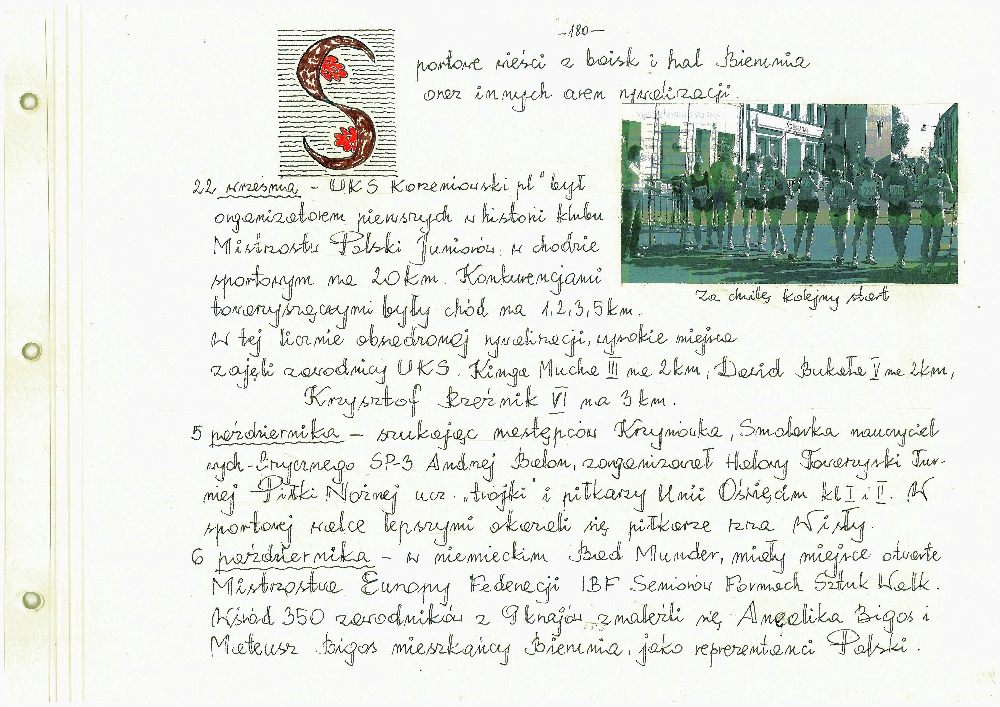 -180-
Sportowe wieści z boisk i hal Bierunia
oraz innych aren rywalizacji.
22 września - UKS Korzeniowski.pl" był
organizatorem pierwszych w historii klubu
Mistrzostw Polski Juniorów w chodzie
sportowym na 20km. Konkurencjami
towarzyszącymi były chód na 1,2,3,5km.
Za chwilę kolejny start
W tej licznie obsadzonej rywalizacji, wysokie miejsca
zajęli zawodnicy UKS. Kinga Mucha III na 2km, Dawid Bukała V na 2km,
Krzysztof Rzeźnik VI na 3km.
5 października - szukając następców Krzynówka, Smolarka nauczyciel
wych-fizycznego SP-3 Andrzej Bielon, zorganizował Halowy Towarzyski Tur-
niej Piłki Nożnej ucz. "trójki" i piłkarzy Unii Oświęcim kl I i II. W
sportowej walce lepszymi okazali się piłkarze zza Wisły.
6 października - w niemieckim Bad Munder, miały miejsce otwarte
Mistrzostwa Europy Federacji IBF Seniorów Formach Sztuk Walk.
Wśród 350 zawodników z 9 krajów znaleźli się Angelika Bigos i
Mateusz Bigos mieszkańcy Bierunia, jako reprezentanci Polski.